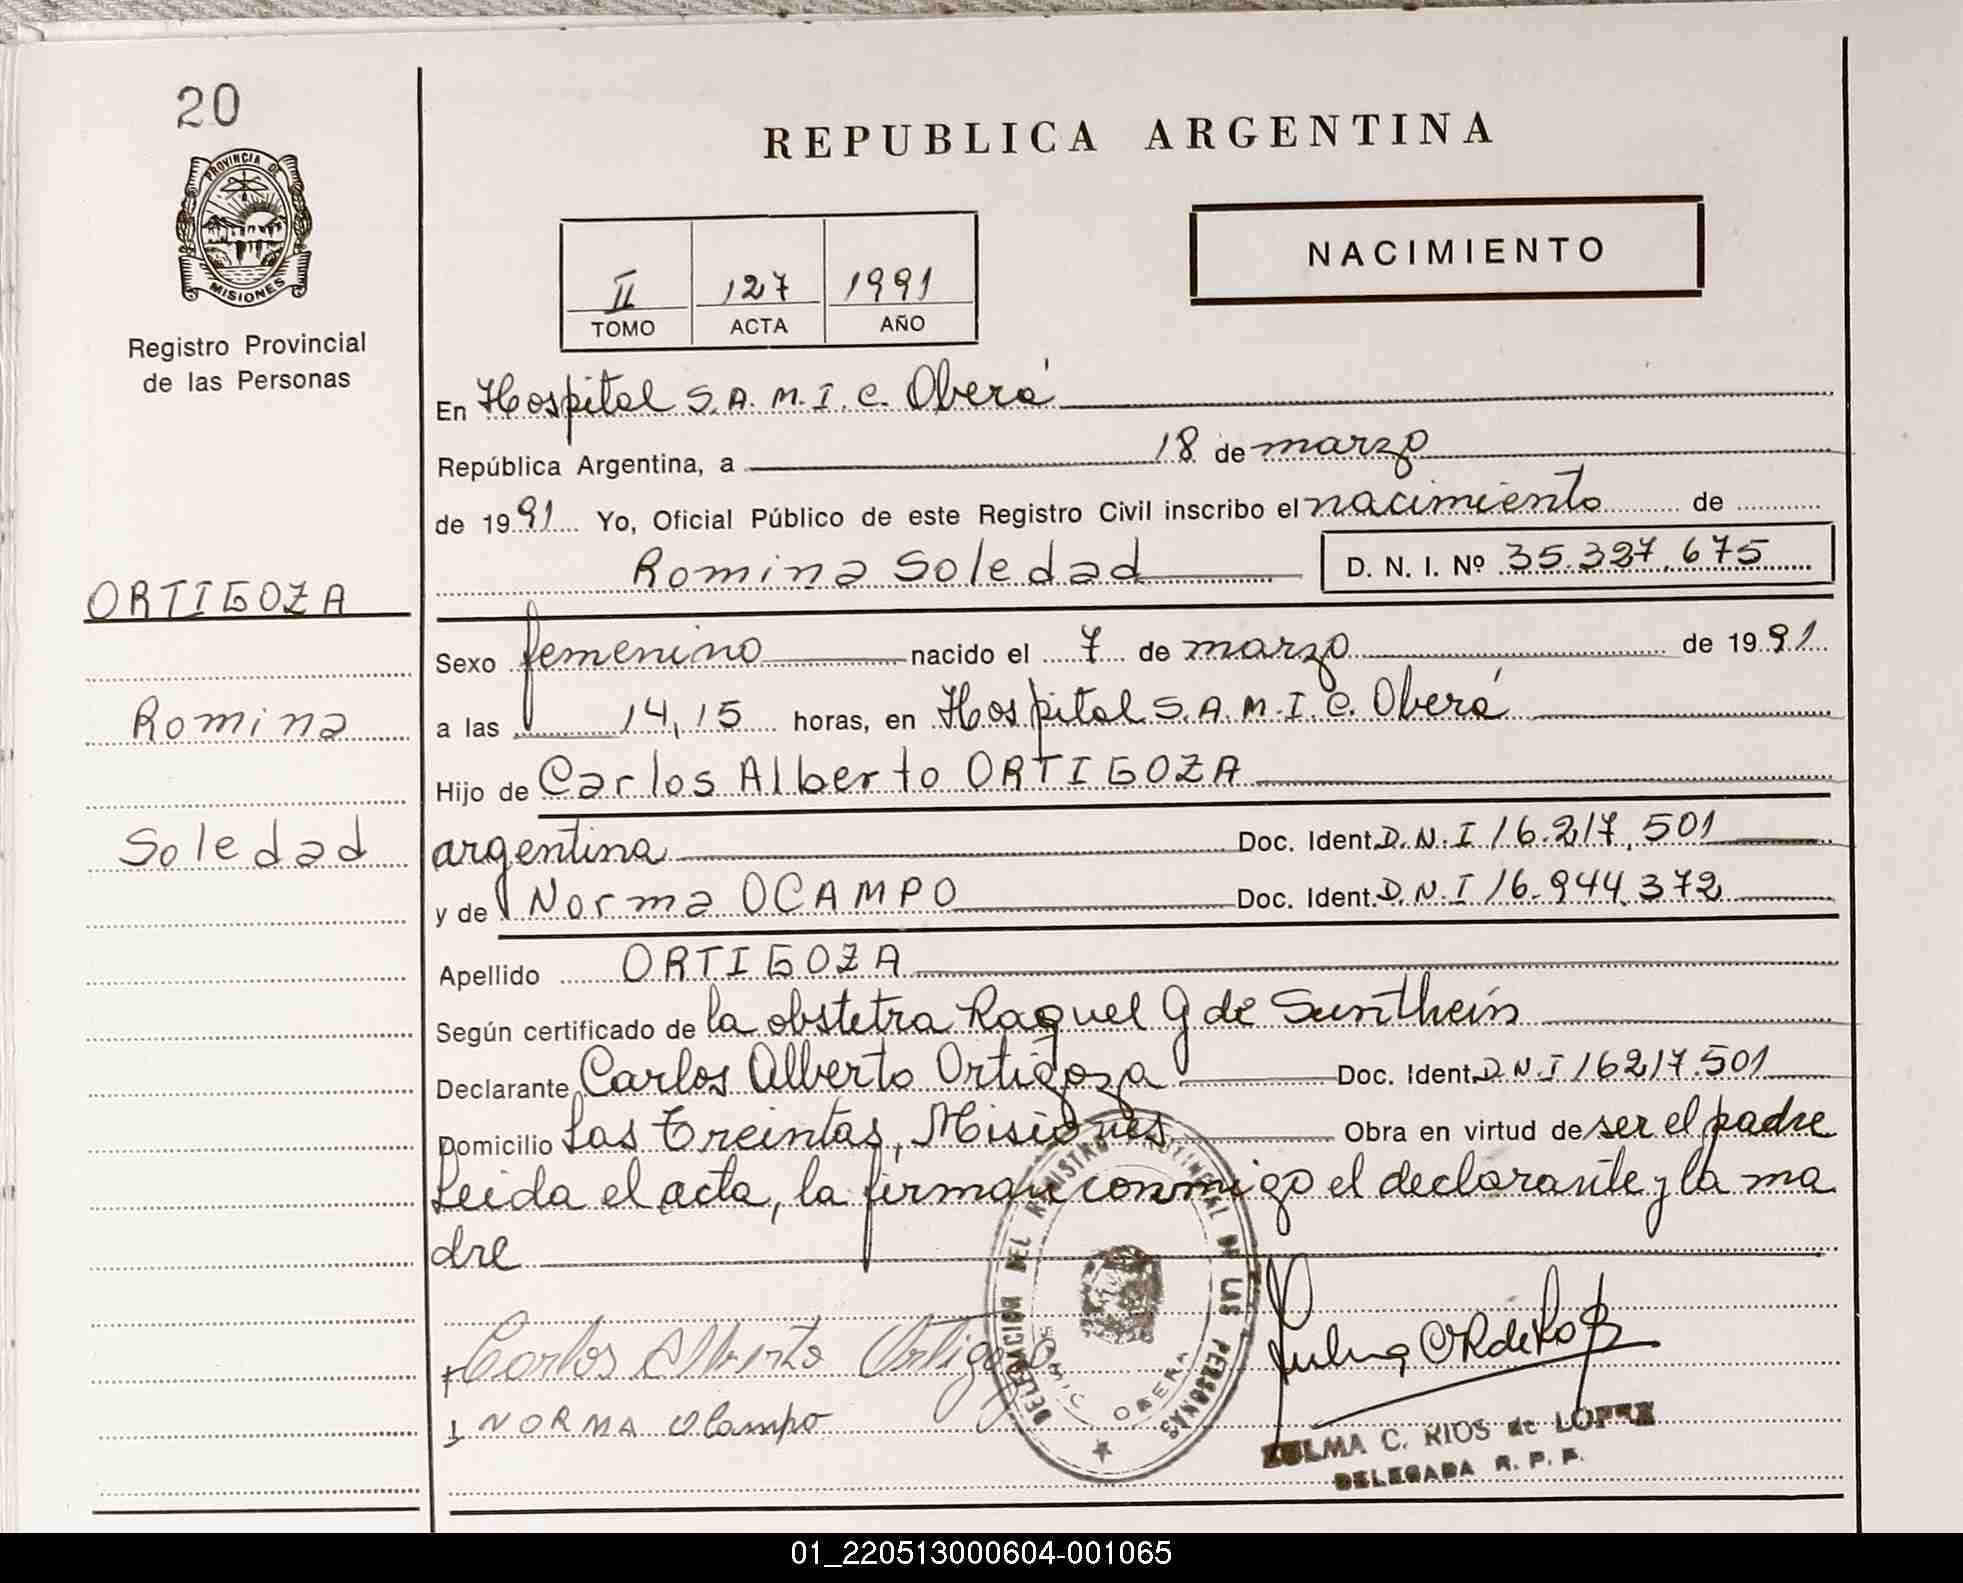 20
PROVINCIA DE
MISIONES
Registro Provincial
de las Personas
ORTIGOZA
Romina
Soledad
REPUBLICA ARGENTINA
NACIMIENTO
II 127 1991
TOMO ACTA AÑO
En Hospital S.A.M.I.C. Oberá
República Argentina, a 18 de marzo
de 1991 Yo, Oficial Público de este Registro Civil inscribo el nacimiento de
Romina Soledad D. N. I. Nº 35.327.675
Sexo femenino nacido el 7 de marzo de 1991
a las 14,15 horas, en Hospital S.A.M.I.C. Oberá
Hijo de Carlos Alberto ORTIGOZA
argentina Doc. Ident. D.N.I 16.217.501
y de Norma OCAMPO Doc. Ident. D.N.I 16.944.372
Apellido ORTIGOZA
Según certificado de la obstetra Raquel G de Suntheim
Declarante Carlos Alberto Ortigoza Doc. Ident. D.N.I 16217.501
Domicilio Los Treintas, Misiones Obra en virtud de ser el padre
Leida el acta, la firman conmigo el declarante y la ma
dre
Carlos Alberto Ortigoza
NORMA Ocampo
DELEGACION DEL REGISTRO PROVINCIAL DE LAS PERSONAS
OBERA
ZULMA C. RIOS de LOPEZ
DELEGADA R. P. P.
01_220513000604-001065